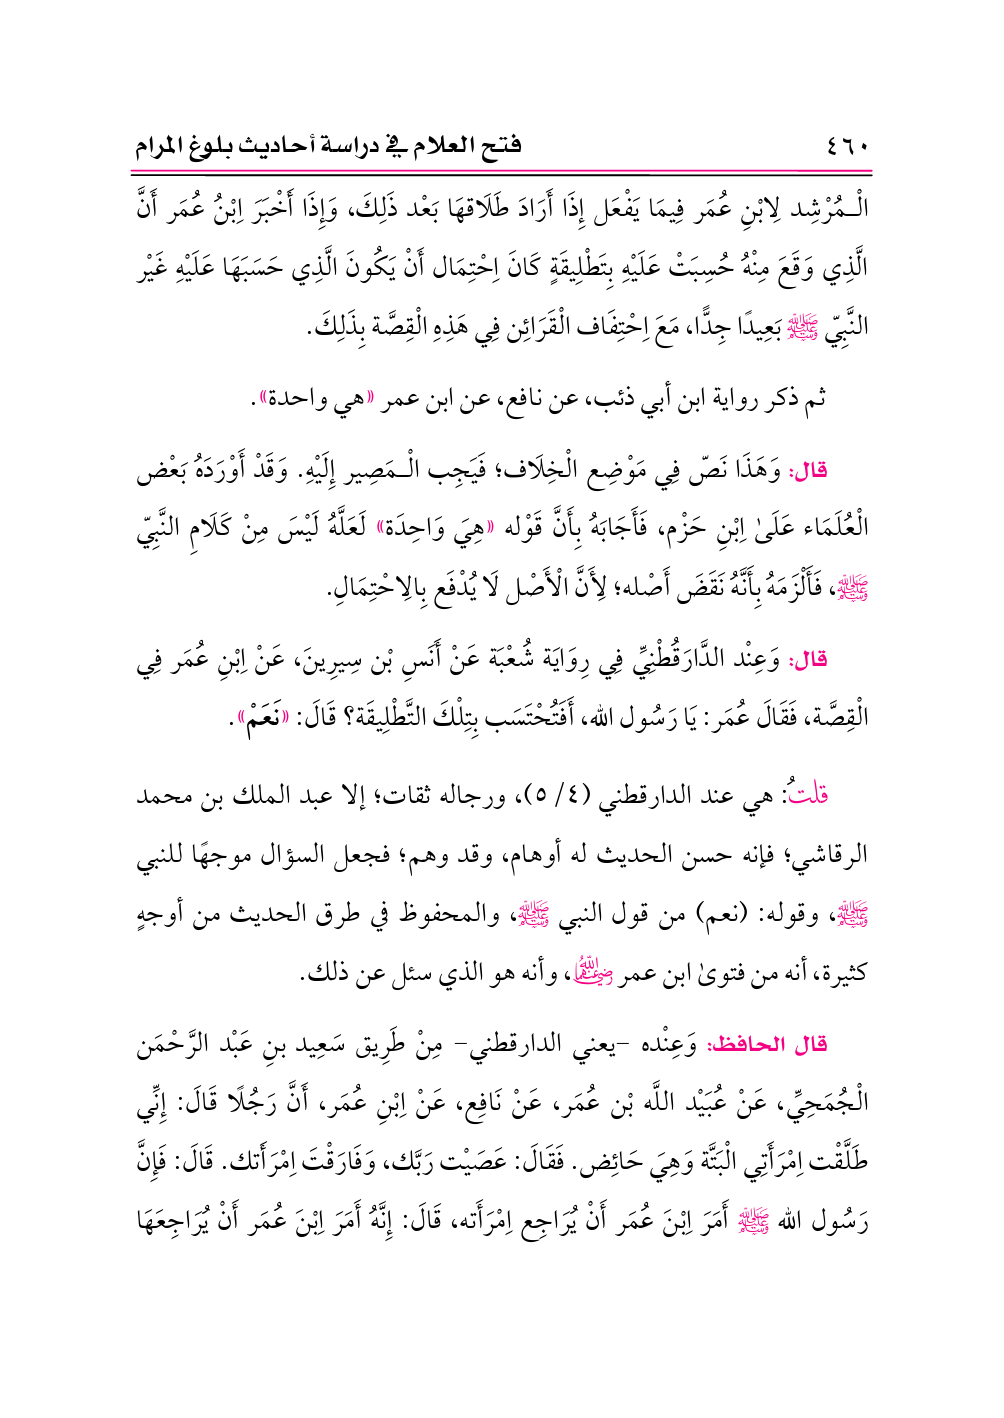 ٤٦٠ فتح العلام في دراسة أحاديث بلوغ المرام
الْـمُرْشِد لِابْنِ عُمَر فِيمَا يَفْعَل إِذَا أَرَادَ طَلَاقهَا بَعْد ذَلِكَ، وَإِذَا أَخْبَرَ اِبْنُ عُمَر أَنَّ
الَّذِي وَقَعَ مِنْهُ حُسِبَتْ عَلَيْهِ بِتَطْلِيقَةٍ كَانَ اِحْتِمَال أَنْ يَكُونَ الَّذِي حَسَبَهَا عَلَيْهِ غَيْر
النَّبِيّ ﷺ بَعِيدًا جِدًّا، مَعَ اِحْتِفَاف الْقَرَائِن فِي هَذِهِ الْقِصَّة بِذَلِكَ.
ثم ذكر رواية ابن أبي ذئب، عن نافع، عن ابن عمر «هي واحدة».
قال: وَهَذَا نَصّ فِي مَوْضِع الْخِلَاف؛ فَيَجِب الْـمَصِير إِلَيْهِ. وَقَدْ أَوْرَدَهُ بَعْض
الْعُلَمَاء عَلَىٰ اِبْنِ حَزْم، فَأَجَابَهُ بِأَنَّ قَوْله «هِيَ وَاحِدَة» لَعَلَّهُ لَيْسَ مِنْ كَلَام النَّبِيّ
ﷺ، فَأَلْزَمَهُ بِأَنَّهُ نَقَضَ أَصْله؛ لِأَنَّ الْأَصْل لَا يُدْفَع بِالِاحْتِمَالِ.
قال: وَعِنْد الدَّارَقُطْنِيِّ فِي رِوَايَة شُعْبَة عَنْ أَنَسِ بْن سِيرِينَ، عَنْ اِبْنِ عُمَر فِي
الْقِصَّة، فَقَالَ عُمَر: يَا رَسُول الله، أَفَتُحْتَسَب بِتِلْكَ التَّطْلِيقَة؟ قَالَ: «نَعَمْ».
قلتُ: هي عند الدارقطني (٤/ ٥)، ورجاله ثقات؛ إلا عبد الملك بن محمد
الرقاشي؛ فإنه حسن الحديث له أوهام، وقد وهم؛ فجعل السؤال موجهًا للنبي
ﷺ، وقوله: (نعم) من قول النبي ﷺ، والمحفوظ في طرق الحديث من أوجهٍ
كثيرة، أنه من فتوىٰ ابن عمر رضي الله عنهما، وأنه هو الذي سئل عن ذلك.
قال الحافظ: وَعِنْده -يعني الدارقطني- مِنْ طَرِيق سَعِيد بنِ عَبْد الرَّحْمَن
الْجُمَحِيِّ، عَنْ عُبَيْد اللَّه بْن عُمَر، عَنْ نَافِع، عَنْ اِبْنِ عُمَر، أَنَّ رَجُلًا قَالَ: إِنِّي
طَلَّقْت اِمْرَأَتِي الْبَتَّة وَهِيَ حَائِض. فَقَالَ: عَصَيْت رَبَّك، وَفَارَقْتَ اِمْرَأَتك. قَالَ: فَإِنَّ
رَسُول الله ﷺ أَمَرَ اِبْنَ عُمَر أَنْ يُرَاجِع اِمْرَأَته، قَالَ: إِنَّهُ أَمَرَ اِبْنَ عُمَر أَنْ يُرَاجِعَهَا